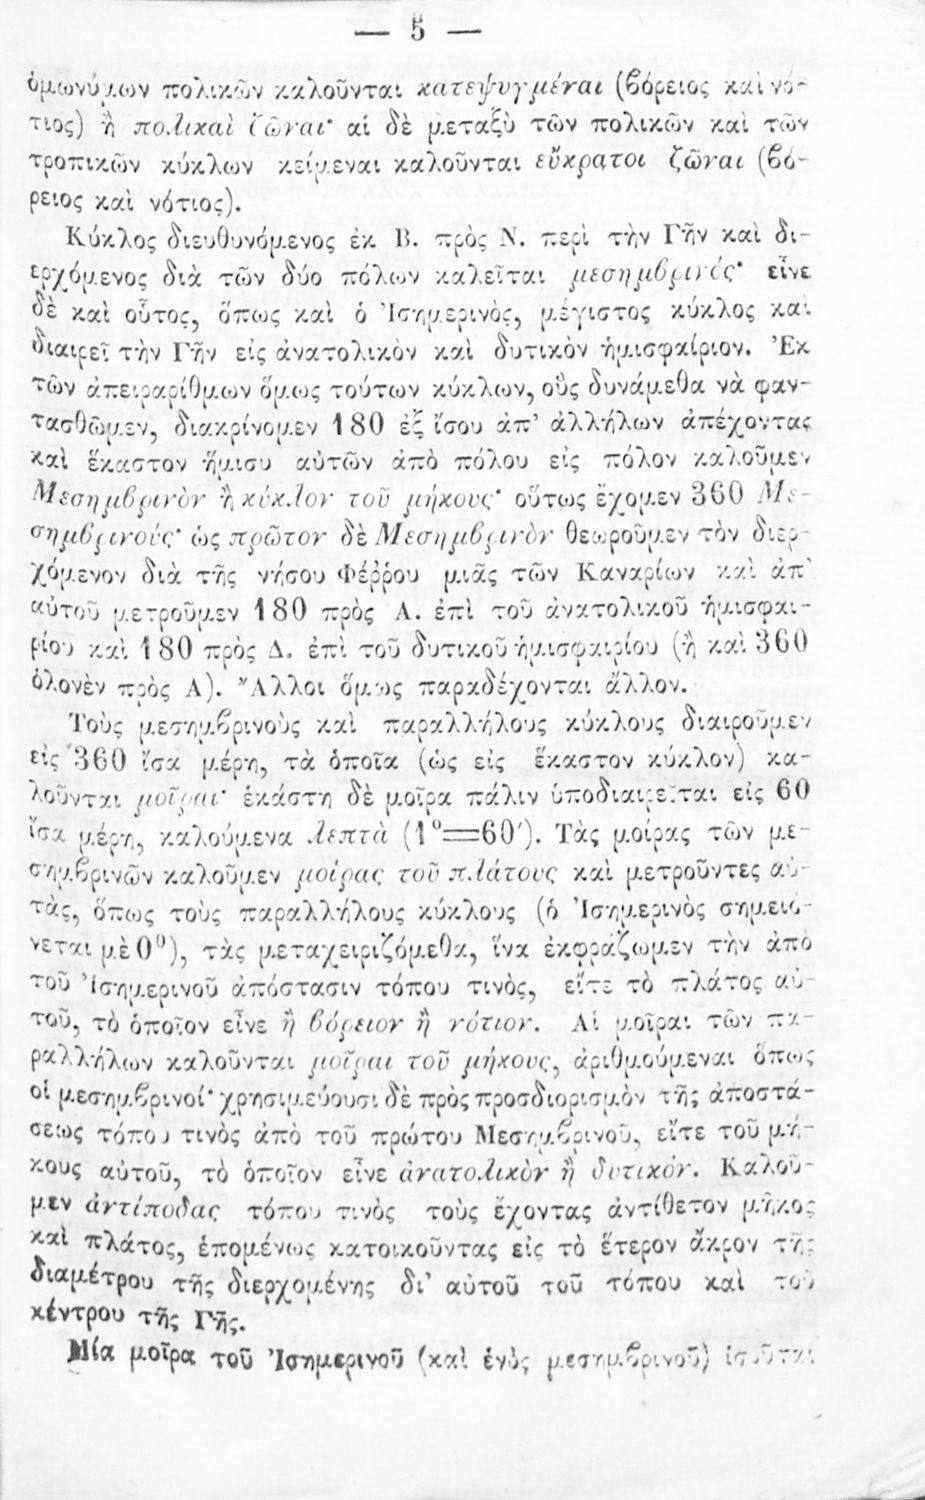 — 5 —
ὁμωνύμων πολικῶν καλοῦνται κατεψυγμέναι (βόρειος καὶ νό-
τιος) ἢ πολικαὶ ζῶναι· αἱ δὲ μεταξὺ τῶν πολικῶν καὶ τῶν
τροπικῶν κύκλων κείμεναι καλοῦνται εὔκρατοι ζῶναι (βό-
ρειος καὶ νότιος).
Κύκλος διευθυνόμενος ἐκ Β. πρὸς Ν. περὶ τὴν Γῆν καὶ δι-
ερχόμενος διὰ τῶν δύο πόλων καλεῖται μεσημβρινός· εἶνε
δὲ καὶ οὗτος, ὅπως καὶ ὁ Ἰσημερινὸς, μέγιστος κύκλος καὶ
διαιρεῖ τὴν Γῆν εἰς ἀνατολικὸν καὶ δυτικὸν ἡμισφαίριον. Ἐκ
τῶν ἀπειραρίθμων ὅμως τούτων κύκλων, οὓς δυνάμεθα νὰ φαν-
τασθῶμεν, διακρίνομεν 180 ἐξ ἴσου ἀπ' ἀλλήλων ἀπέχοντας
καὶ ἕκαστον ἥμισυ αὐτῶν ἀπὸ πόλου εἰς πόλον καλοῦμεν
Μεσημβρινὸν ἢ κύκλον τοῦ μήκους· οὕτως ἔχομεν 360 Με-
σημβρινούς· ὡς πρῶτον δὲ Μεσημβρινὸν θεωροῦμεν τὸν διερ-
χόμενον διὰ τῆς νήσου Φέῤῥου μιᾶς τῶν Καναρίων καὶ ἀπ'
αὐτοῦ μετροῦμεν 180 πρὸς Α. ἐπὶ τοῦ ἀνατολικοῦ ἡμισφαι-
ρίου καὶ 180 πρὸς Δ. ἐπὶ τοῦ δυτικοῦ ἡμισφαιρίου (ἢ καὶ 360
ὁλονὲν πρὸς Α). Ἄλλοι ὅμως παραδέχονται ἄλλον.
Τοὺς μεσημβρινοὺς καὶ παραλλήλους κύκλους διαιροῦμεν
εἰς 360 ἴσα μέρη, τὰ ὁποῖα (ὡς εἰς ἕκαστον κύκλον) κα-
λοῦνται μοῖραι· ἑκάστη δὲ μοῖρα πάλιν ὑποδιαιρεῖται εἰς 60
ἴσα μέρη, καλούμενα λεπτὰ (1°=60′). Τὰς μοίρας τῶν με-
σημβρινῶν καλοῦμεν μοίρας τοῦ πλάτους καὶ μετροῦντες αὐ-
τὰς, ὅπως τοὺς παραλλήλους κύκλους (ὁ Ἰσημερινὸς σημειό-
νεται μὲ 0°), τὰς μεταχειριζόμεθα, ἵνα ἐκφράζωμεν τὴν ἀπὸ
τοῦ Ἰσημερινοῦ ἀπόστασιν τόπου τινὸς, εἴτε τὸ πλάτος αὐ-
τοῦ, τὸ ὁποῖον εἶνε ἢ βόρειον ἢ νότιον. Αἱ μοῖραι τῶν πα-
ραλλήλων καλοῦνται μοῖραι τοῦ μήκους, ἀριθμούμεναι ὅπως
οἱ μεσημβρινοί· χρησιμεύουσι δὲ πρὸς προσδιορισμὸν τῆς ἀποστά-
σεως τόπου τινὸς ἀπὸ τοῦ πρώτου Μεσημβρινοῦ, εἴτε τοῦ μή-
κους αὐτοῦ, τὸ ὁποῖον εἶνε ἀνατολικὸν ἢ δυτικόν. Καλοῦ-
μεν ἀντίποδας τόπου τινὸς τοὺς ἔχοντας ἀντίθετον μῆκος
καὶ πλάτος, ἑπομένως κατοικοῦντας εἰς τὸ ἕτερον ἄκρον τῆς
διαμέτρου τῆς διερχομένης δι' αὐτοῦ τοῦ τόπου καὶ τοῦ
κέντρου τῆς Γῆς.
Μία μοῖρα τοῦ Ἰσημερινοῦ (καὶ ἑνὸς μεσημβρινοῦ) ἰσοῦται